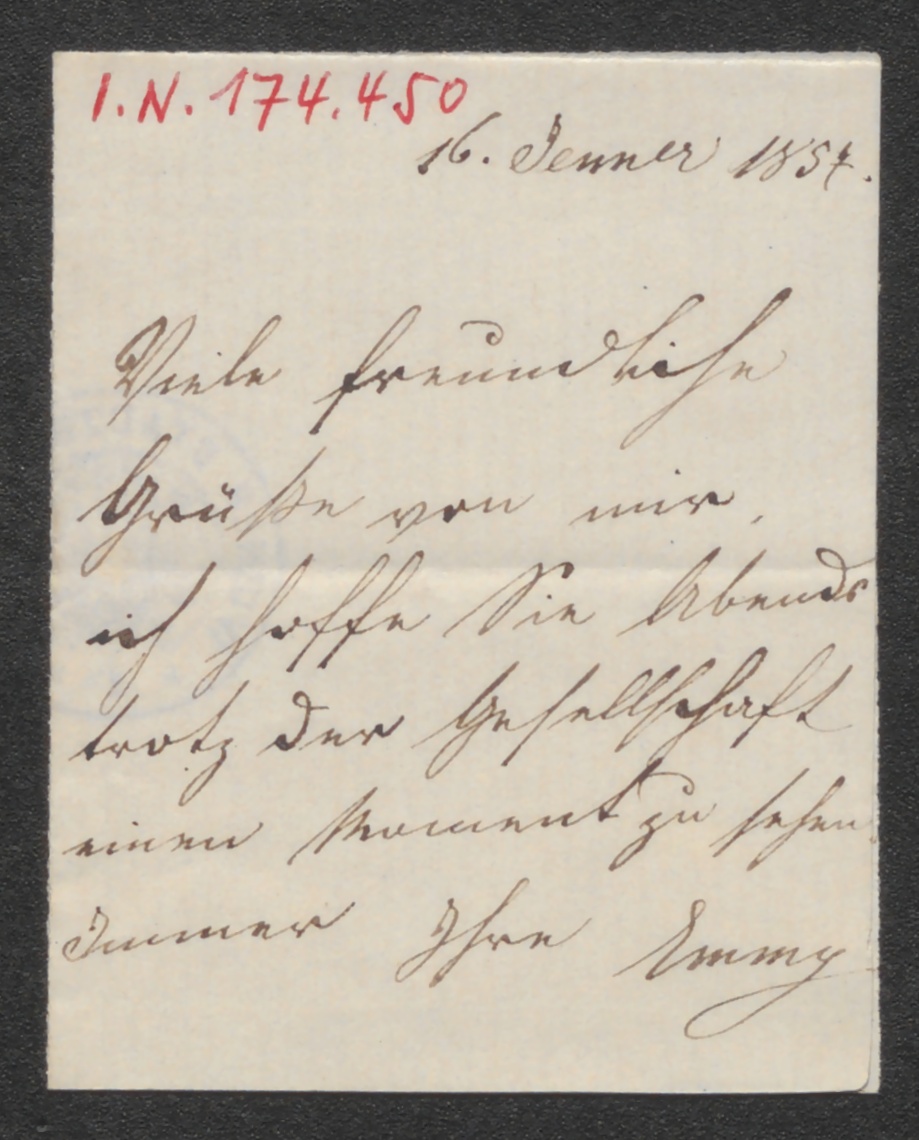 I.N. 174.450
16. Jenner 1857.
Viele freundliche
Grüße von mir,
ich hoffe Sie Abends
trotz der Gesellschaft
einen Moment zu sehen
Immer Ihre Emmy